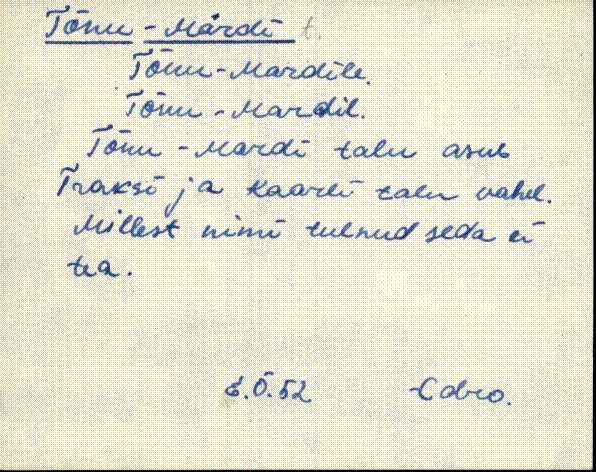 Tõnu-Mardi t.
Tõnu-Mardile.
Tõnu-Mardil.
Tõnu-Mardi talu asub
Traksi ja Kaarli talu vahel.
Millest nimi tulnud seda ei
tea.
E.Ö.52